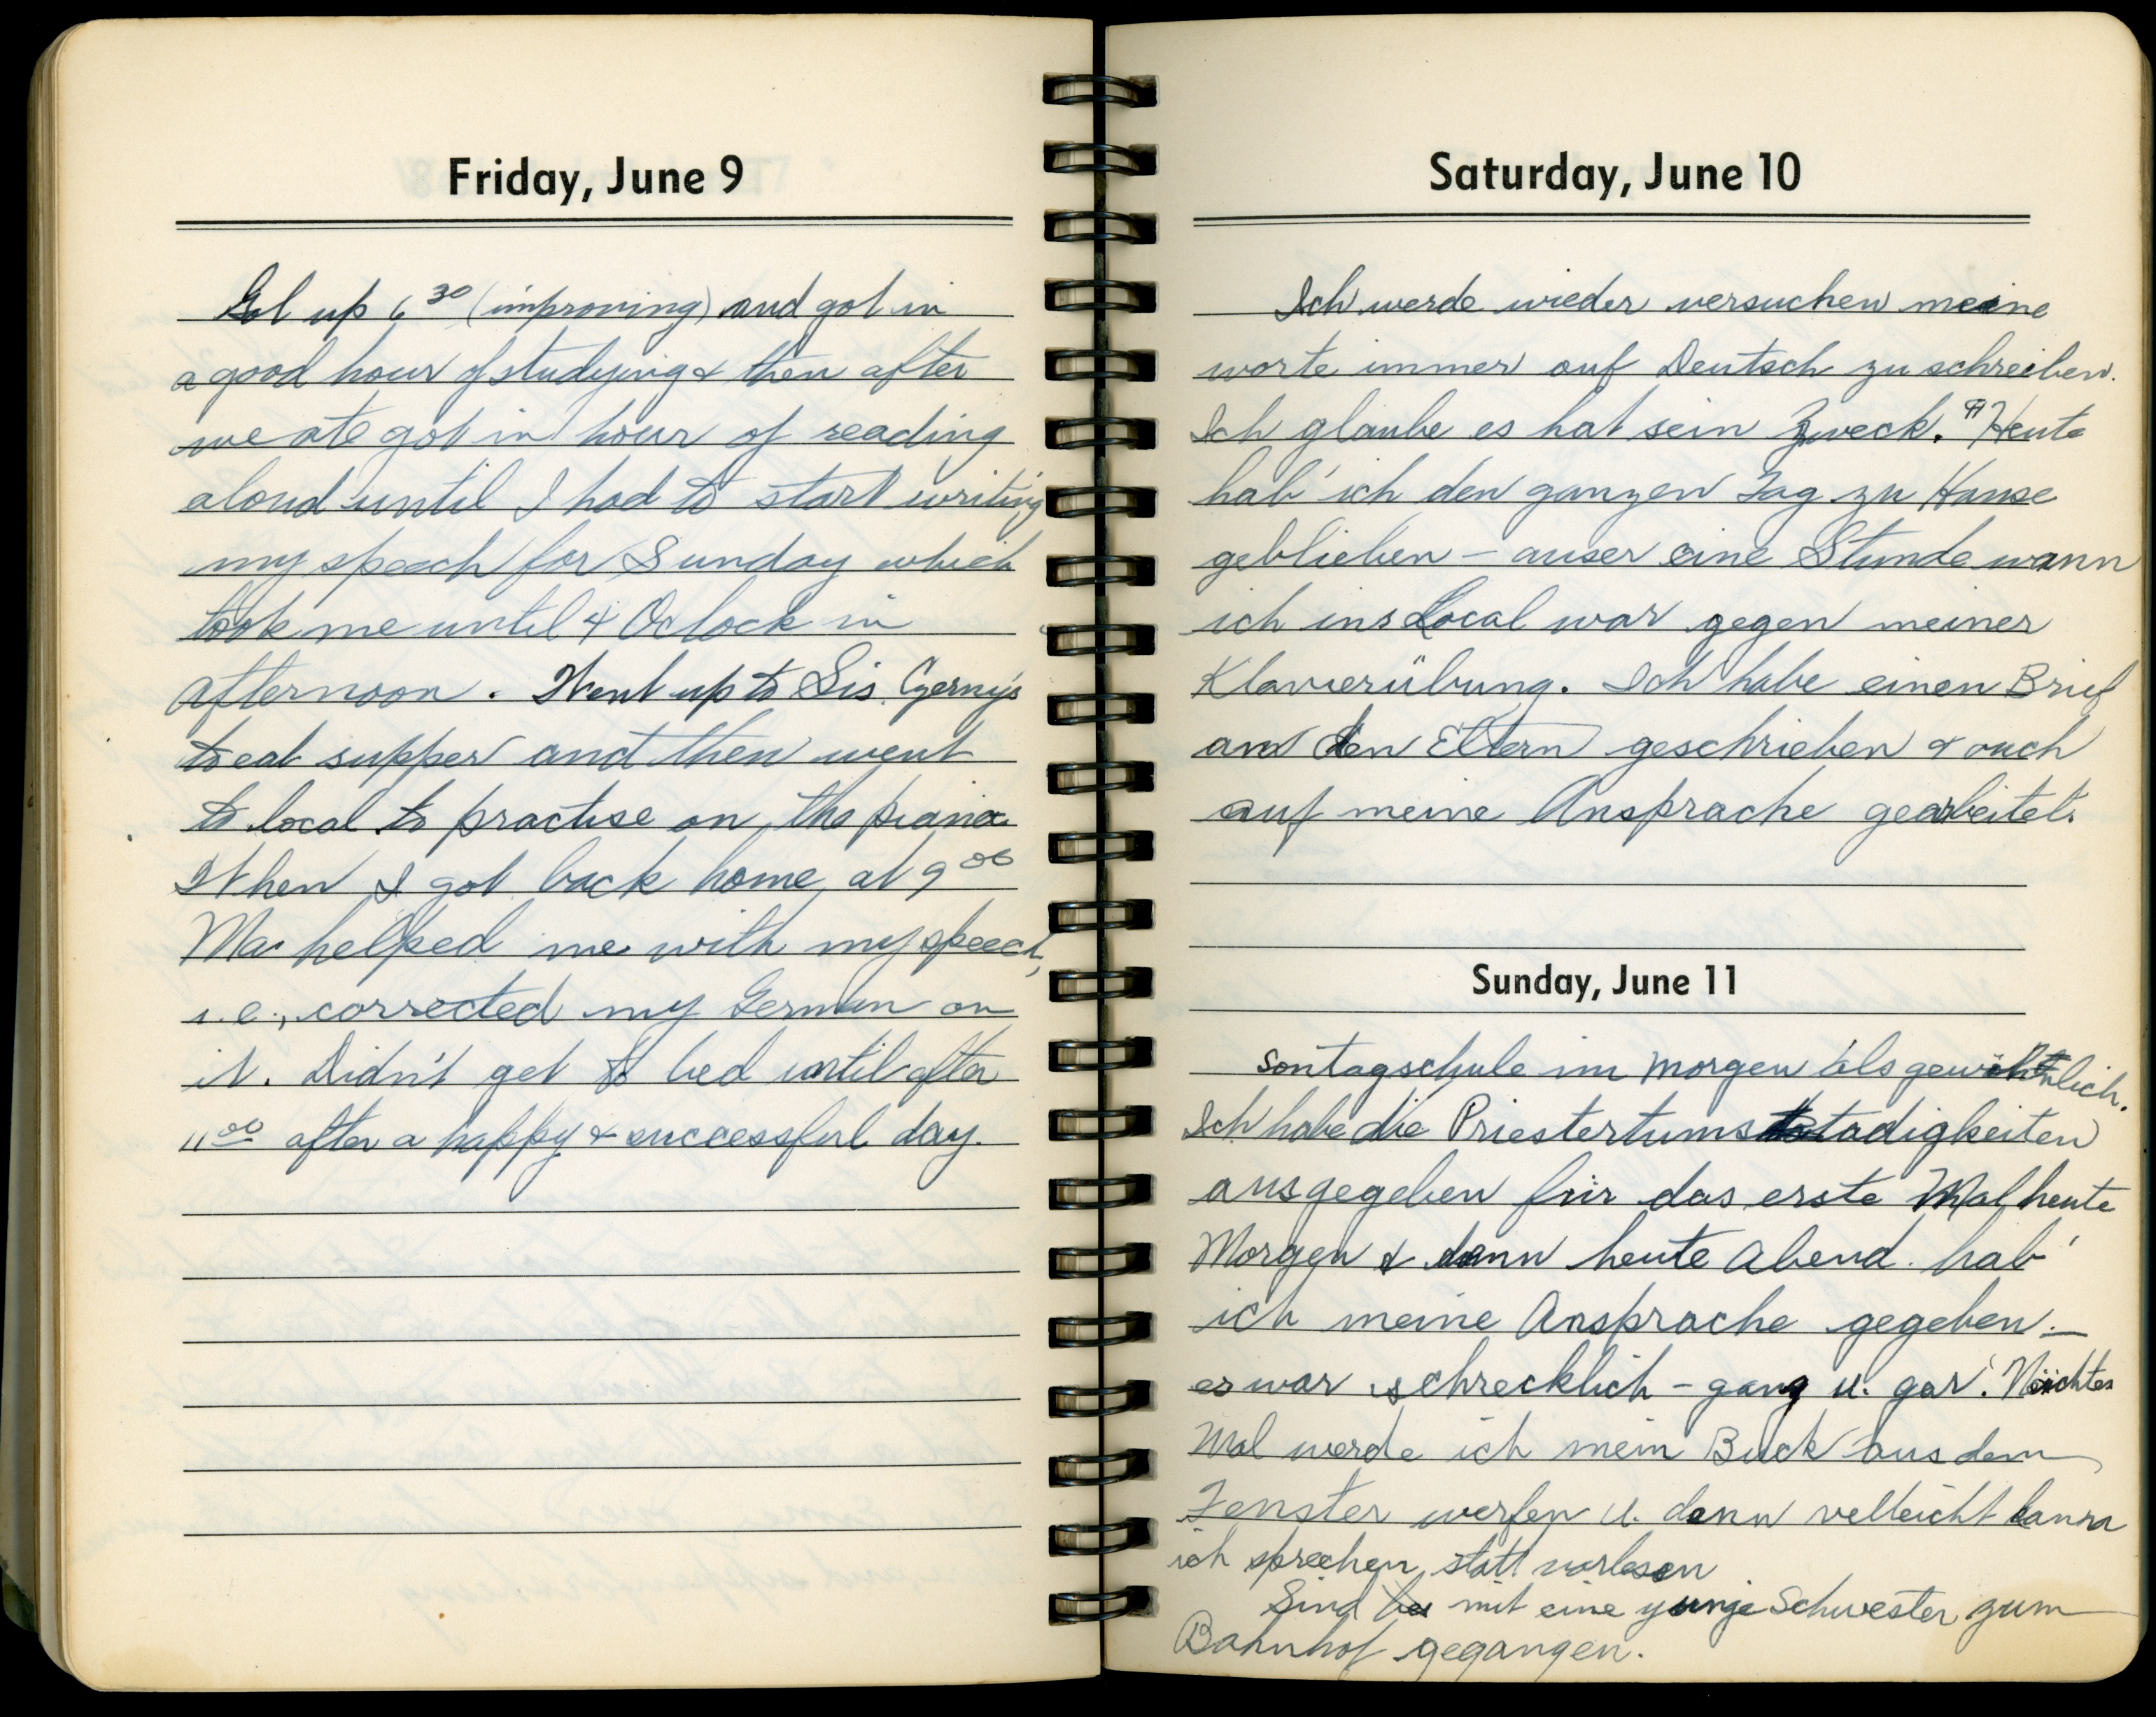 Friday, June 9
Got up 6 30 (improving) and got in
a good hour of studying & then after
we ate got in hour of reading
aloud until I had to start writing
my speech for Sunday which
took me until 4 Oclock in
afternoon. Went up to Sis. Czerny's
to eat supper and then went
to local to practise on the piano.
When I got back home at 9 00
Mac helped me with my speech,
i.e., corrected my German on
it. Didn't get to bed until after
11 00 after a happy & successful day.
Saturday, June 10
Ich werde wieder versuchen meine
worte immer auf Deutsch zu schreiben.
Ich glaube es hat sein Zweck. Heute
hab' ich den ganzen Tag zu Hause
geblieben – auser eine Stunde wann
ich ins Local war gegen meiner
Klavierübung. Ich habe einen Brief
an den Eltern geschrieben & auch
auf meine Ansprache gearbeitet.
Sunday, June 11
Sontagschule im Morgen als gewöhnlich.
Ich habe die Priestertums tadigkeiten
ausgegeben für das erste Mal heute
Morgen & dann heute Abend hab'
ich meine Ansprache gegeben –
es war schrecklich – ganz u. gar. Nächtes
Mal werde ich mein Buck aus dem
Fenster werfen u. dann velleicht kann
ich sprechen statt vorlesen
Sind mit eine yunge Schwester zum
Bahnhof gegangen.